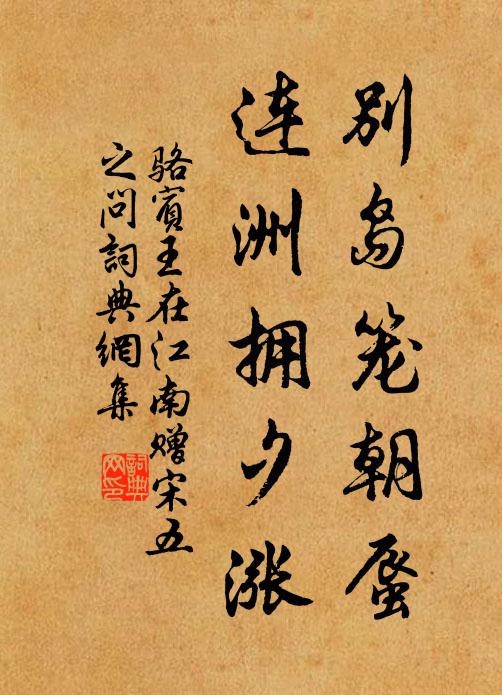 别岛笼朝蜃
连洲拥夕涨
骆賓王在江南赠宋五
之问詞典網集
詞典
网印